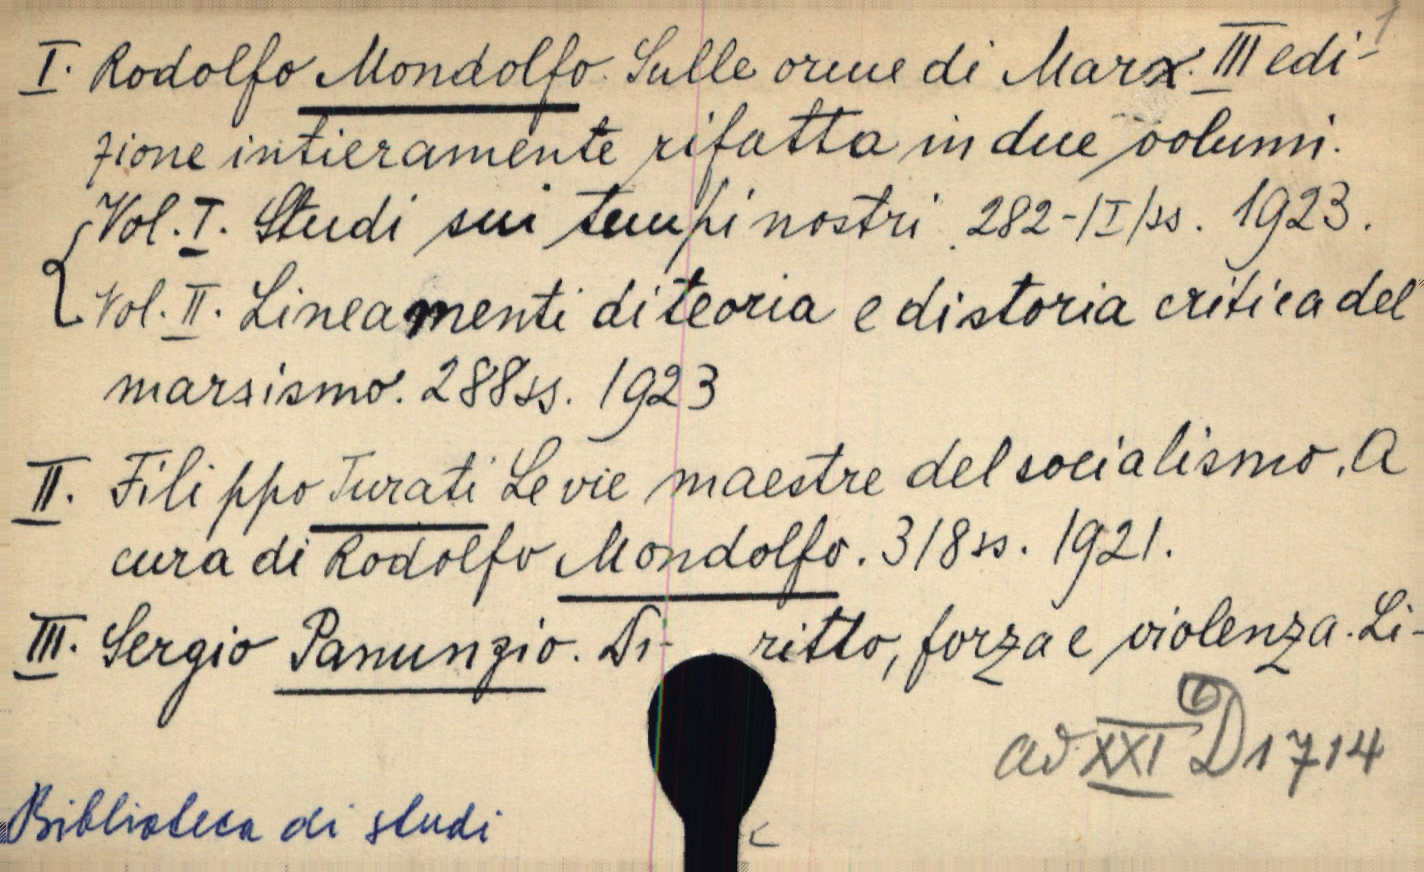 1
I. Rodolfo Mondolfo. Sulle orme di Marx. III edi-
zione intieramente rifatta in due volumi.
Vol. I. Studi sui tempi nostri. 282-/I/ss. 1923.
Vol. II. Lineamenti di teoria e di storia critica del
marxismo. 288ss. 1923
II. Filippo Turati Le vie maestre del socialismo. A
cura di Rodolfo Mondolfo. 318ss. 1921.
III. Sergio Panunzio. Di-ritto, forza e violenza. Li-
ad XXI D1714
Biblioteca di studi